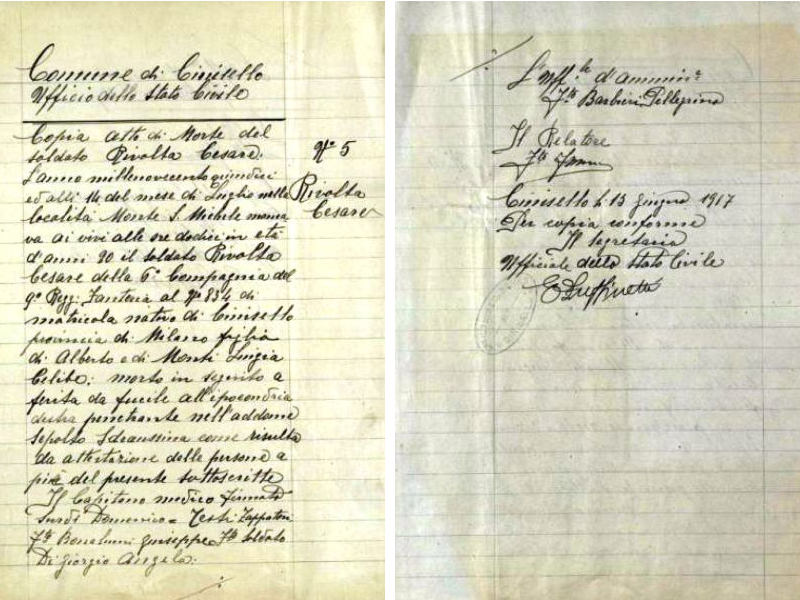 Comune di Cinisello
Ufficio dello Stato Civile
Copia atto di Morte del
soldato Rivolta Cesare.
L'anno millenovecento quindici
ed alli 14 del mese di Luglio nella
località Monte S. Michele manca
va ai vivi alle ore dodici in età
d'anni 20 il soldato Rivolta
Cesare della 6ª Compagnia del
9º Regg. Fanteria al Nº 834 di
matricola nativo di Cinisello
provincia di Milano figlio
di Alberto e di Monti Luigia
Celibe: morto in seguito a
ferita da fucile all'ipocondria
destra penetrante nell'addome
sepolto Sdraussina come risulta
da attestazione delle persone a
piè del presente sottoscritte
Il Capitano medico firmato
Domenico = Testi Zappatori
Fto Giuseppe Fto soldato
Di Giorgio Angelo.
Nº 5
Rivolta
Cesare
L'Uff.le d'ammin.e
Fto Barbieri Pellegrino
Il Relatore
Fto
Cinisello li 13 giugno 1917
Per copia conforme
Il segretario
Ufficiale dello Stato Civile